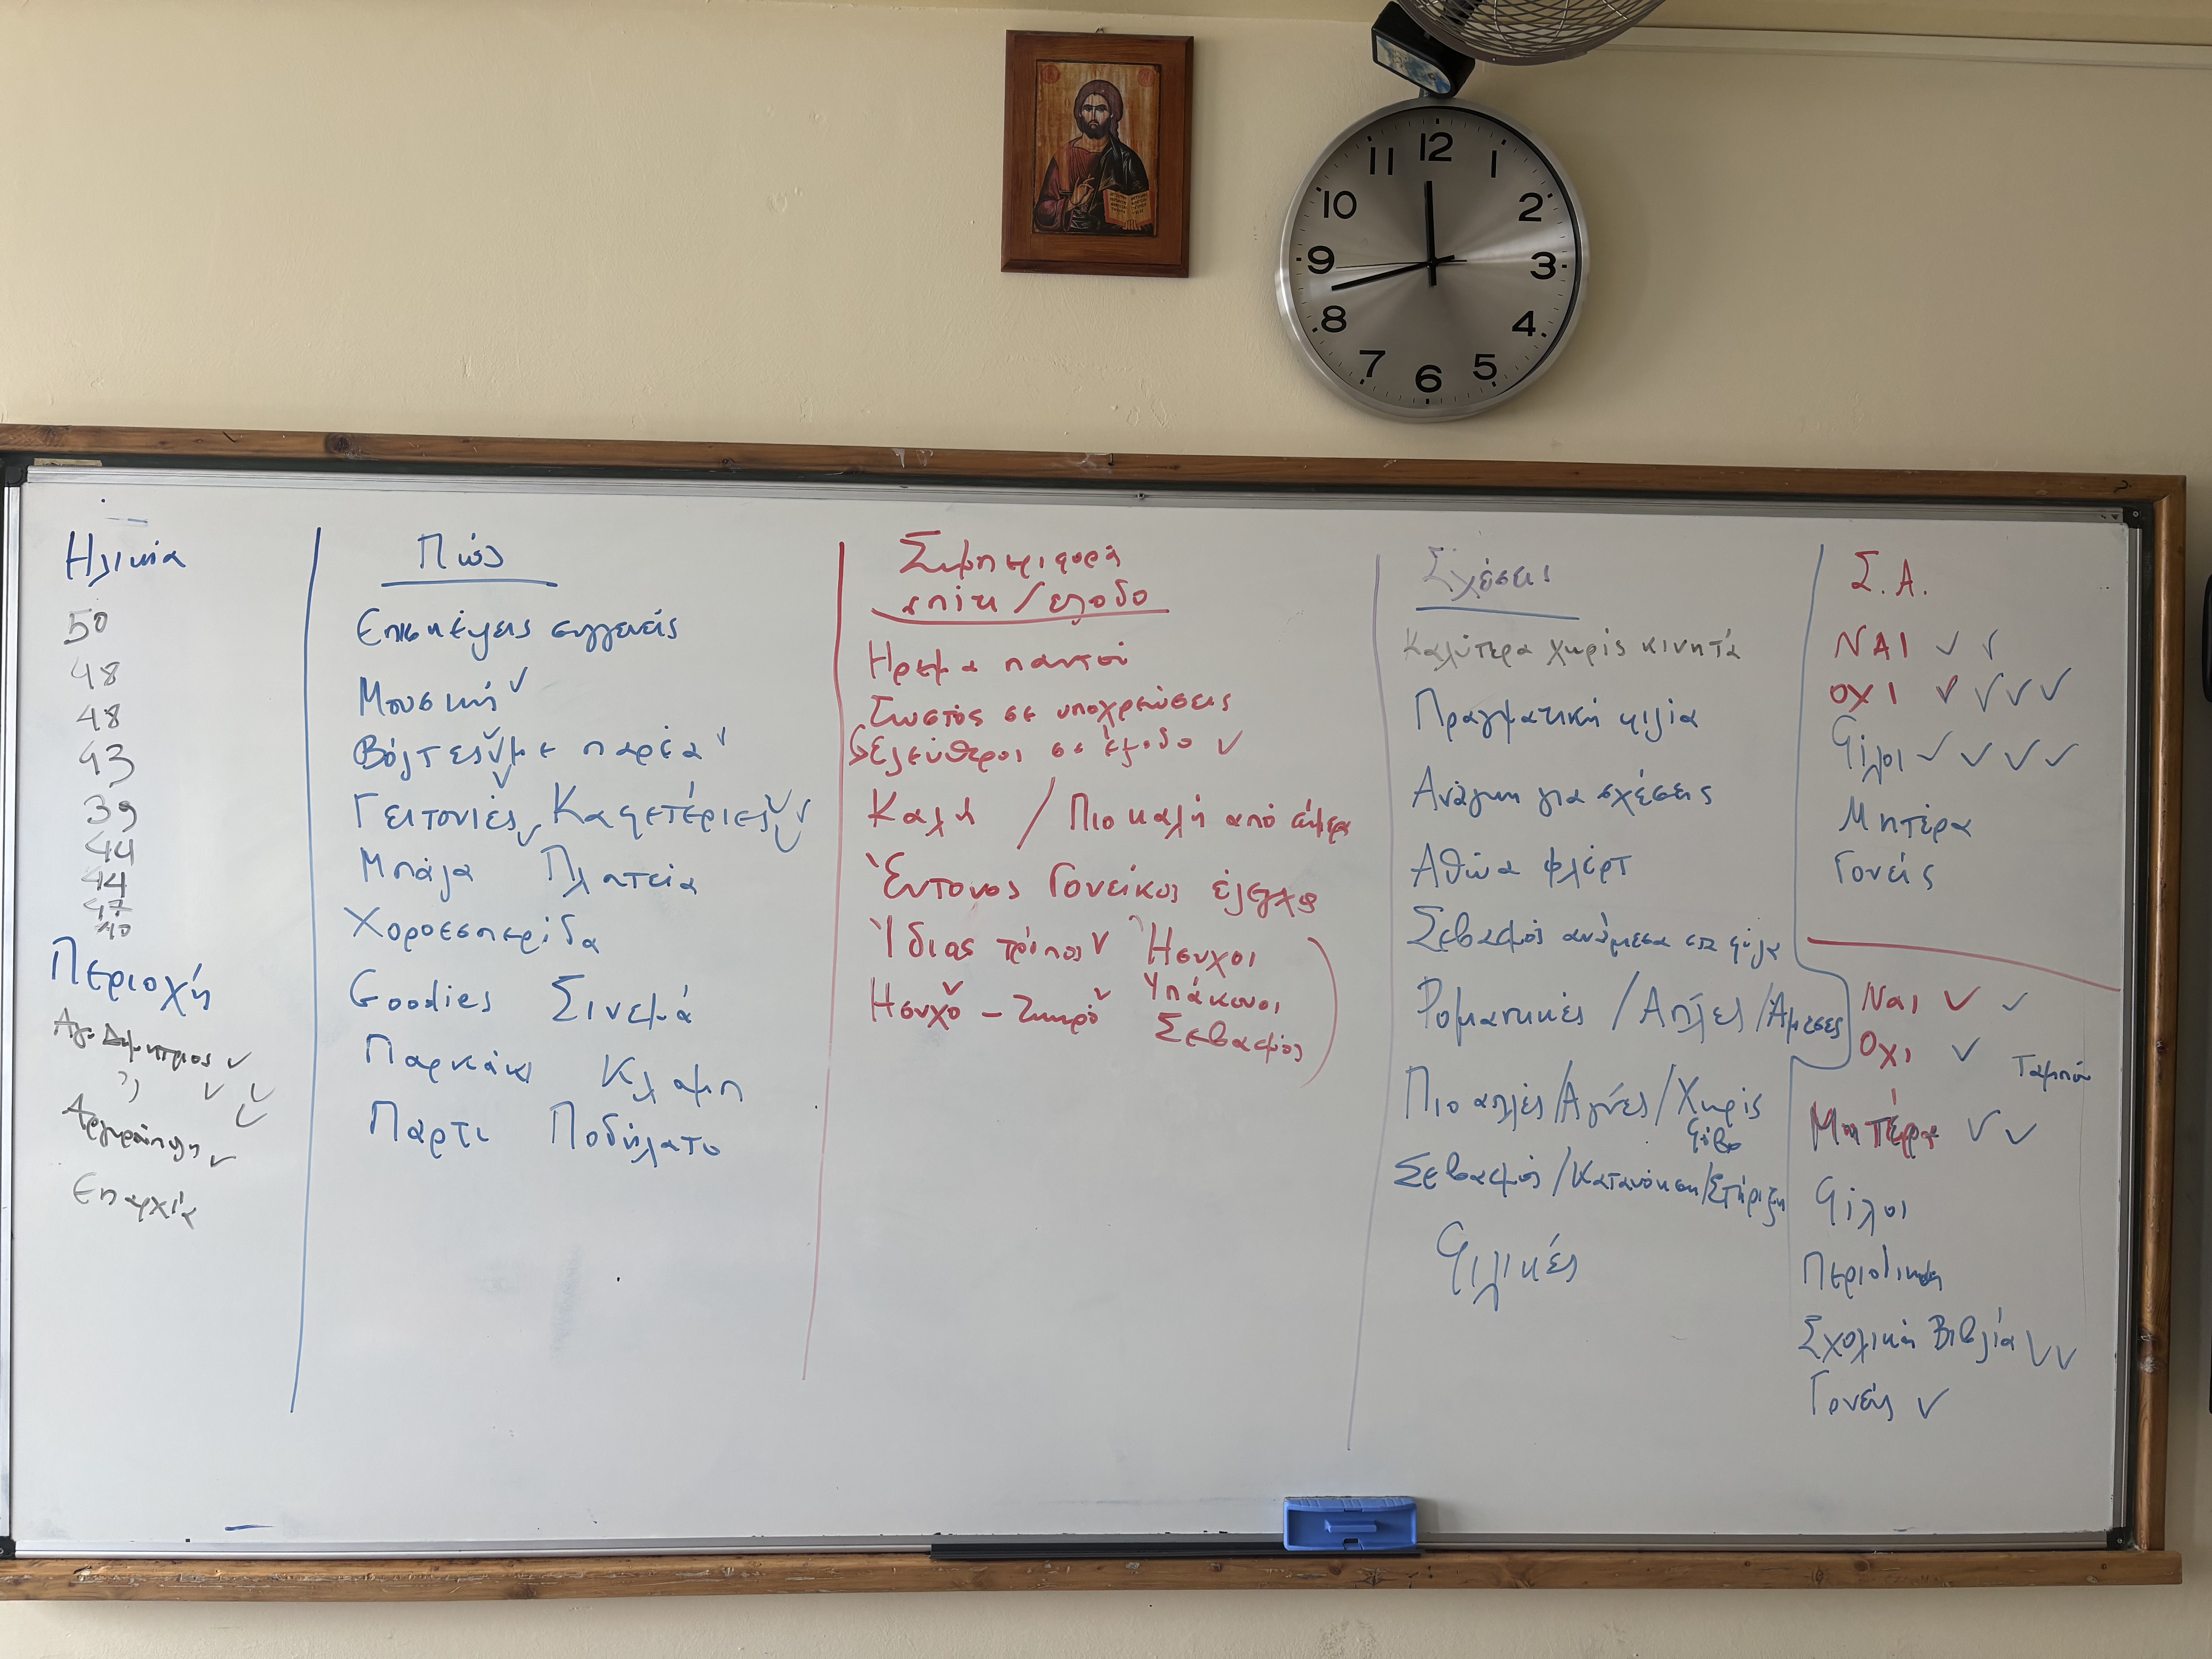 12
11 1
10 2
9 3
8 4
7 5
6
Ηλικία
50
48
48
43
39
44
44
47
40
Περιοχή
Αγ. Δημήτριος ✓
" ✓ ✓ ✓
Αργυρούπολη ✓
Επαρχία
Πώς
Επισκέψεις συγγενείς
Μουσική ✓
Βόλτες ✓ με παρέα ✓
Γειτονιές ✓ ✓ Καφετέριες ✓ ✓ ✓
Μπάλα Πλατεία
Χοροεσπερίδα
Goodies Σινεμά
Παρκάκι Κλαμπ
Πάρτι Ποδήλατο
Συμπεριφορά
σπίτι / έξοδο
Ήρεμα παντού
Σωστός σε υποχρεώσεις
Ελεύθεροι σε έξοδο ✓
Καλή / Πιο καλή από σήμερα
Έντονος Γονεϊκός έλεγχος
Ίδιος τρόπος ✓ Ήσυχοι
Ησυχο ✓ – ✓ Υπάκουοι
Σεβασμός
Σχέσεις
Καλύτερα χωρίς κινητά
Πραγματική φιλία
Ανάγκη για σχέσεις
Αθώα φλέρτ
Σεβασμός ανάμεσα στα φύλα
Ρομαντικές / Απλές / Άμεσες
Πιο απλές / Αγνές / Χωρίς
φόβο
Σεβασμός / Κατανόηση / Στήριξη
Φιλικές
Σ.Α.
ΝΑΙ ✓ ✓
ΟΧΙ ✓ ✓ ✓ ✓
Φίλοι ✓ ✓ ✓ ✓
Μητέρα
Γονείς
Ναι ✓ ✓
Όχι ✓ Ταμπού
Μητέρα ✓ ✓
Φίλοι
Περιοδικά
Σχολικά Βιβλία ✓ ✓
Γονείς ✓